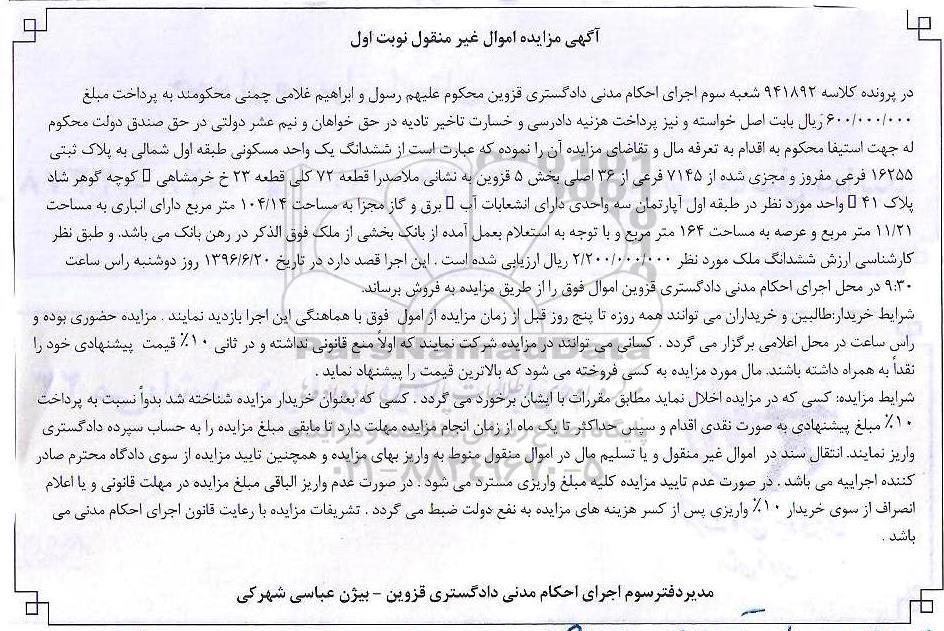 آگهی مزایده اموال غیر منقول نوبت اول
در پرونده کلاسه ۹۴۱۸۹۲ شعبه سوم اجرای احکام مدنی دادگستری قزوین محکوم علیهم رسول و ابراهیم غلامی چمنی محکومند به پرداخت مبلغ
۶۰۰/۰۰۰/۰۰۰ ریال بابت اصل خواسته و نیز پرداخت هزنیه دادرسی و خسارت تاخیر تادیه در حق خواهان و نیم عشر دولتی در حق صندق دولت محکوم
له جهت استیفا محکوم به اقدام به تعرفه مال و تقاضای مزایده آن را نموده که عبارت است از ششدانگ یک واحد مسکونی طبقه اول شمالی به پلاک ثبتی
۱۶۲۵۵ فرعی مفروز و مجزی شده از ۷۱۴۵ فرعی از ۳۶ اصلی بخش ۵ قزوین به نشانی ملاصدرا قطعه ۷۲ کلی قطعه ۲۳ خ خرمشاهی کوچه گوهر شاد
پلاک ۴۱ واحد مورد نظر در طبقه اول آپارتمان سه واحدی دارای انشعابات آب برق و گاز مجزا به مساحت ۱۰۴/۱۴ متر مربع دارای انباری به مساحت
۱۱/۲۱ متر مربع و عرصه به مساحت ۱۶۴ متر مربع و با توجه به استعلام بعمل آمده از بانک بخشی از ملک فوق الذکر در رهن بانک می باشد. و طبق نظر
کارشناسی ارزش ششدانگ ملک مورد نظر ۲/۲۰۰/۰۰۰/۰۰۰ ریال ارزیابی شده است . این اجرا قصد دارد در تاریخ ۱۳۹۶/۶/۲۰ روز دوشنبه راس ساعت
۹:۳۰ در محل اجرای احکام مدنی دادگستری قزوین اموال فوق را از طریق مزایده به فروش برساند.
شرایط خریدار:طالبین و خریداران می توانند همه روزه تا پنج روز قبل از زمان مزایده از امول فوق با هماهنگی این اجرا بازدید نمایند . مزایده حضوری بوده و
راس ساعت در محل اعلامی برگزار می گردد . کسانی می توانند در مزایده شرکت نمایند که اولاً منع قانونی نداشته و در ثانی ۱۰٪ قیمت پیشنهادی خود را
نقداً به همراه داشته باشند. مال مورد مزایده به کسی فروخته می شود که بالاترین قیمت را پیشنهاد نماید .
شرایط مزایده: کسی که در مزایده اخلال نماید مطابق مقررات با ایشان برخورد می گردد . کسی که بعنوان خریدار مزایده شناخته شد بدواً نسبت به پرداخت
۱۰٪ مبلغ پیشنهادی به صورت نقدی اقدام و سپس حداکثر تا یک ماه از زمان انجام مزایده مهلت دارد تا مابقی مبلغ مزایده را به حساب سپرده دادگستری
واریز نمایند. انتقال سند در اموال غیر منقول و یا تسلیم مال در اموال منقول منوط به واریز بهای مزایده و همچنین تایید مزایده از سوی دادگاه محترم صادر
کننده اجراییه می باشد . در صورت عدم تایید مزایده کلیه مبلغ واریزی مسترد می شود . در صورت عدم واریز الباقی مبلغ مزایده در مهلت قانونی و یا اعلام
انصراف از سوی خریدار ۱۰٪ واریزی پس از کسر هزینه های مزایده به نفع دولت ضبط می گردد . تشریفات مزایده با رعایت قانون اجرای احکام مدنی می
باشد .
مدیردفترسوم اجرای احکام مدنی دادگستری قزوین - بیژن عباسی شهرکی
ParsNamadData
پایگاه اطلاع رسانی مناقصه و مزایده
۰۲۱-۸۸۳۴۹۶۷۰-۵